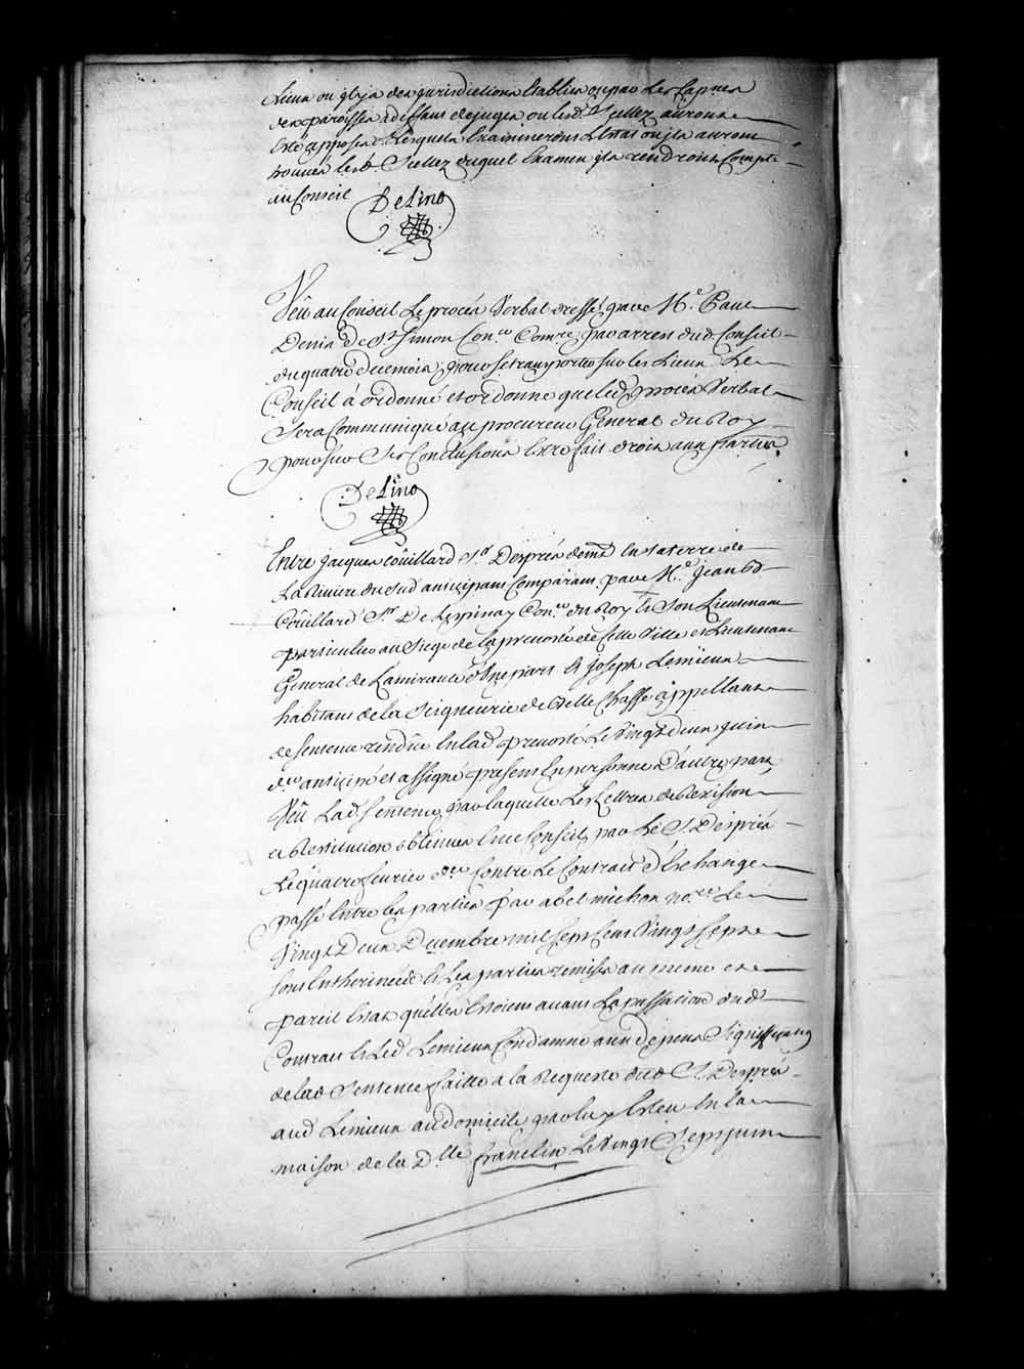 Lieux ou il y a des jurisdictions Etablies ou par les Capnes
des paroisses a deffaut de juges ou lesd. Scellez auronz
Eté apposez Lesquels Examineronz L'Etat ou ils auronz
trouvez lesd. Scellez duquel Examen ils rendronz Compte
au Conseil Delino
Veu au Conseil Le procés Verbal dressé par Me. Paul
Denis De St. Simon Coner. Comre. par arrest dud. Conseil
du quatre Decembre pour se transporter sur les Lieux Le
Conseil à ordonné et ordonne que led. procés Verbal
Sera Communiqué au procureur General du Roy
pour sur Ses Conclusions Etre fait droit aux parties
Delino
Entre Jacques Coüillard Sr. Després demt. En sa terre de
La Riviere du Sud anticipant Comparant par Me. Jean Bt.
Coüillard Sr. De Lespinay Coner. du Roy Et Son Lieutenant
particulier au Siege de la prevosté de Cette Ville et Lieutenant
General de L'amirauté d'Une part Et Joseph Lemieux
habitant de la Seigneurie de Belle Chasse appellant
de Sentence rendüe En lad. prevosté Le Vingt deux juin
der. anticipé et assigné present En personne D'autre part
Veu Lad. Sentence par laquelle Les Lettres de Rescision
et Restitution obtenües En ce Conseil par Le Sr. Després
Le quatre fevrier der. Contre Le Contrat d'Echange
passé Entre les parties par abel michon nore. Le
Vingt Deux Decembre mil Sept Cent Vingt Septe
Sont Entherinées Et Les parties remises au meme et
pareil Etat qu'elles Etoient avant La passation dud.
Contrat Et Led. Lemieux Condamné aux depens Signiffication
de lad. Sentence faitte a la Requeste dud. Sr. Després
aud. Lemieux au domicile par luy Esleu En la
maison de la Dlle. franclin Le Vingt Sept juin